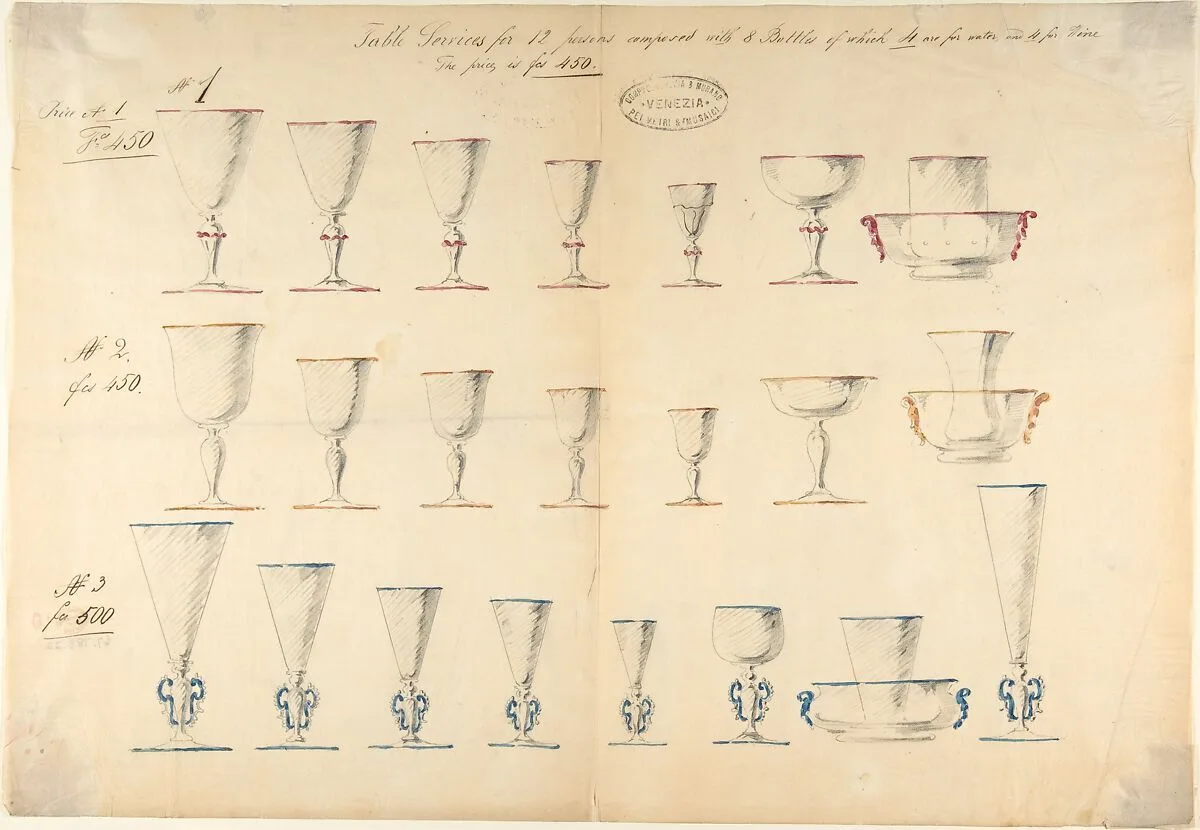 Table Services for 12 persons composed with 8 Bottles of which 4 are for water, and 4 for Wine
The price, is fcs 450.
Nº 1
Price Nº 1
Fcs 450
VENEZIA & MURANO
• VENEZIA •
PEI VETRI & MUSAICI
Nº 2.
fcs 450.
Nº 3
fcs 500